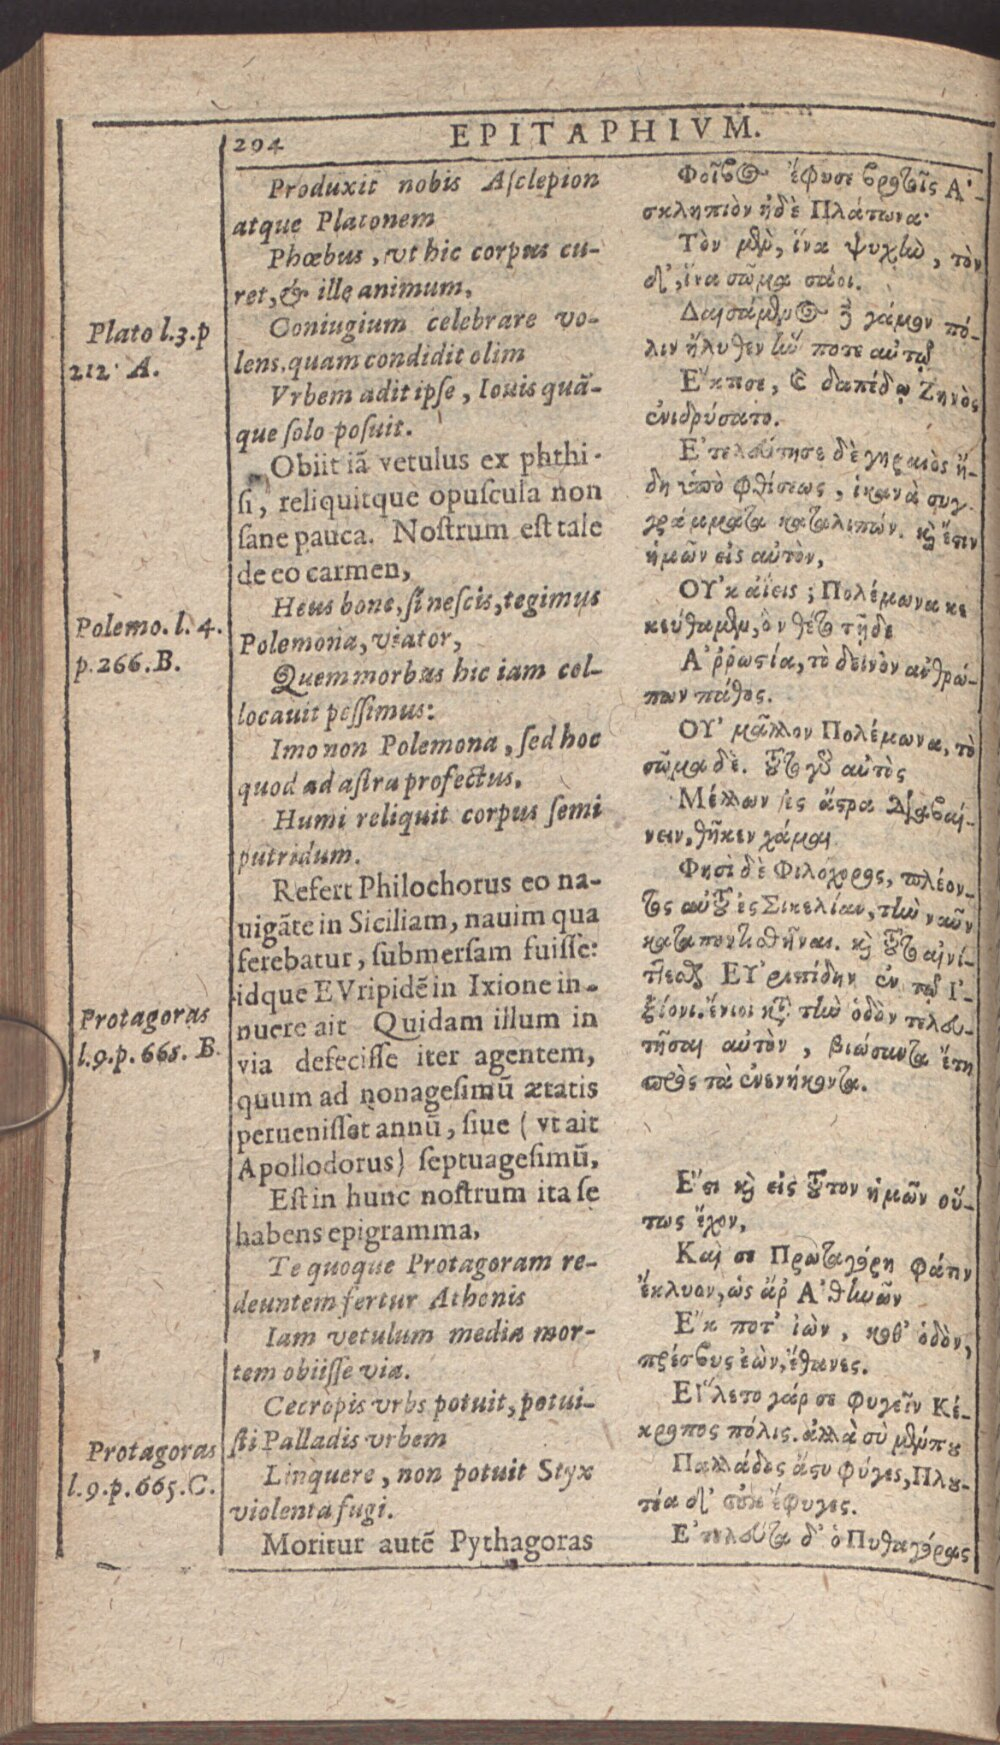 294
EPITAPHIVM.
Plato l.3.p
212. A.
Polemo. l. 4.
p.266.B.
Protagoras
l.9.p.665. B.
Protagoras
l.9.p.665.C.
Produxit nobis Aſclepion
atque Platonem
Phœbus, vt hic corpus cu-
ret, & ille animum,
Coniugium celebrare vo-
lens, quam condidit olim
Vrbem adit ipſe, Iouis quã-
que ſolo poſuit.
Obiit iã vetulus ex phthi-
ſi, reliquitque opuſcula non
ſane pauca. Noſtrum eſt tale
de eo carmen,
Heus bone, ſi neſcis, tegimus
Polemona, viator,
Quem morbus hic iam col-
locauit peſſimus:
Imo non Polemona, ſed hoc
quod ad aſtra profectus,
Humi reliquit corpus ſemi
putridum.
Refert Philochorus eo na-
uigãte in Siciliam, nauim qua
ferebatur, ſubmerſam fuiſſe:
idque EVripidẽ in Ixione in-
nuere ait Quidam illum in
via defeciſſe iter agentem,
quum ad nonageſimũ ætatis
perueniſſet annũ, ſiue (vt ait
Apollodorus) ſeptuageſimũ,
Eſt in hunc noſtrum ita ſe
habens epigramma,
Te quoque Protagoram re-
deuntem fertur Athenis
Iam vetulum media mor-
tem obiiſſe via.
Cecropis vrbs potuit, potui-
ſti Palladis vrbem
Linquere, non potuit Styx
violenta fugi.
Moritur autẽ Pythagoras
Φοῖβος ἔφυσε βροτοῖς Α'-
σκληπιὸν ἠδὲ Πλάτωνα·
Τὸν μὲν, ἵνα ψυχὴν, τὸν
δ', ἵνα σῶμα σάοι.
Δαισάμενος δὲ γάμον πό-
λιν ἤλυθεν ἥν ποτε αὐτῷ
Ἔκτισε, καὶ δαπέδῳ Ζηνὸς
ἐνιδρύσατο.
Ε'τελεύτησε δὲ γηραιὸς ἤ-
δη ὑπὸ φθίσεως, ἱκανὰ συγ-
γράμματα καταλιπών. καὶ ἔστιν
ἡμῶν εἰς αὐτὸν,
ΟΥ'κ ἀΐεις; Πολέμωνα κε
κεύθαμεν, ὃν θέτο τῇδε
Α'ῤῥωστία, τὸ δεινὸν ἀνθρώ-
πων πάθος.
ΟΥ' μᾶλλον Πολέμωνα, τὸ
σῶμα δὲ. τοῦτο γὰρ αὐτὸς
Μέλλων ἐς ἄστρα διαβαί-
νειν, θῆκεν χάμαι
Φησὶ δὲ Φιλόχορος, πλέον-
τος αὐτοῦ ἐς Σικελίαν, τὴν ναῦν
καταποντισθῆναι. καὶ τοῦτο αἰνί-
τεσθαι ΕΥ'ριπίδην ἐν τῷ Ι'-
ξίονι. ἔνιοι κατὰ τὴν ὁδὸν τελευ-
τῆσαι αὐτὸν, βιώσαντα ἔτη
πρὸς τὰ ἐνενήκοντα.
Ἔστι καὶ εἰς τοῦτον ἡμῶν οὕ-
τως ἔχον,
Καὶ σε Πρωταγόρη φάτιν
ἔκλυον, ὡς ἄρ Α'θηνῶν
Ἔκ ποτ' ἰὼν, καθ' ὁδὸν,
πρέσβυς ἐὼν, ἔθανες.
Εἵλετο γάρ σε φυγεῖν Κέ-
κροπος πόλις. ἀλλὰ σὺ μέν που
Παλλάδος ἄστυ φύγες, Πλου-
τέα δ' οὐκ ἔφυγες.
Ε'τελεύτα δ' ὁ Πυθαγόρας